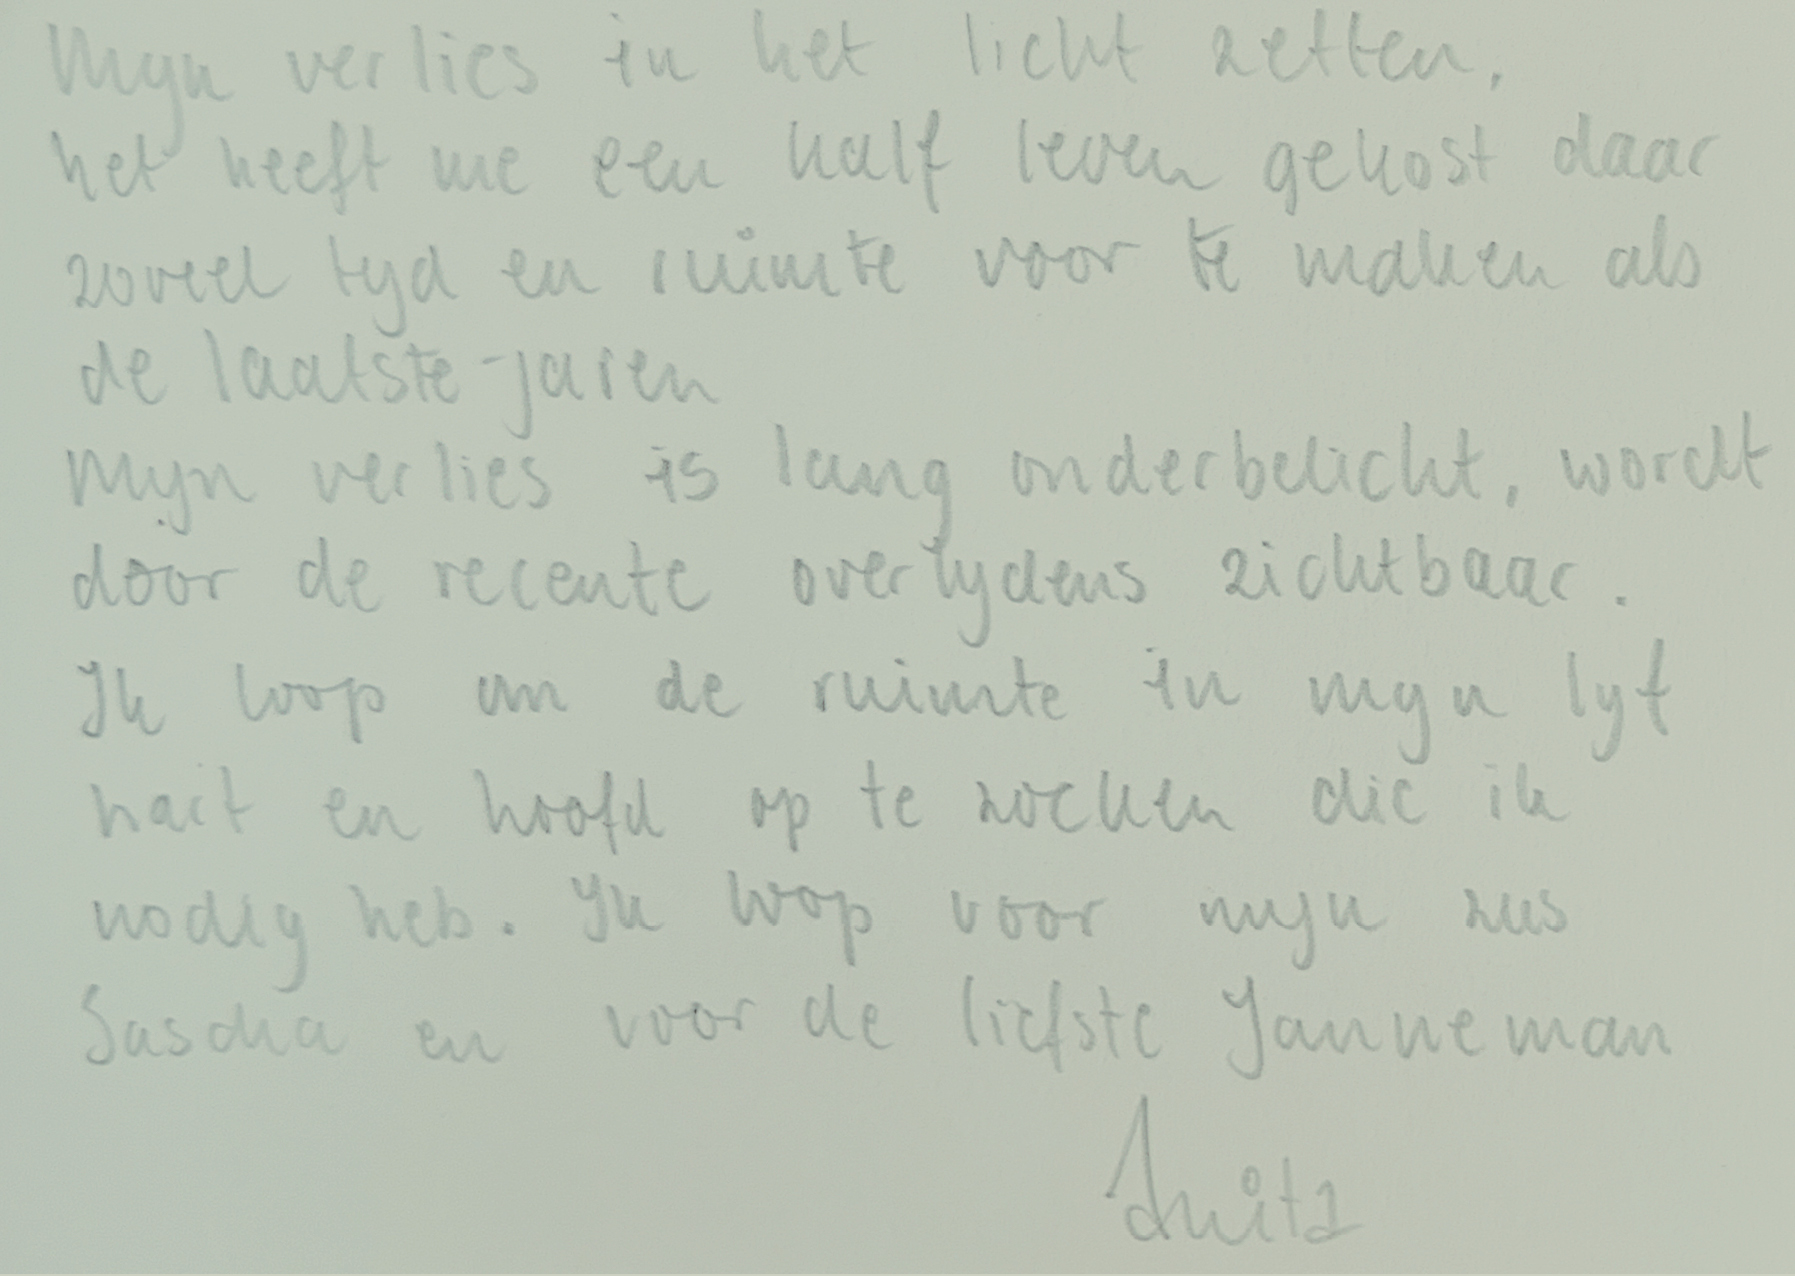 Mijn verlies in het licht zetten,
het heeft me een half leven gekost daar
zoveel tijd en ruimte voor te maken als
de laatste jaren
Mijn verlies is lang onderbelicht, wordt
door de recente overlijdens zichtbaar.
Ik loop om de ruimte in mijn lijf
hart en hoofd op te zoeken die ik
nodig heb. Ik loop voor mijn zus
Sascha en voor de liefste Janneman
Anita